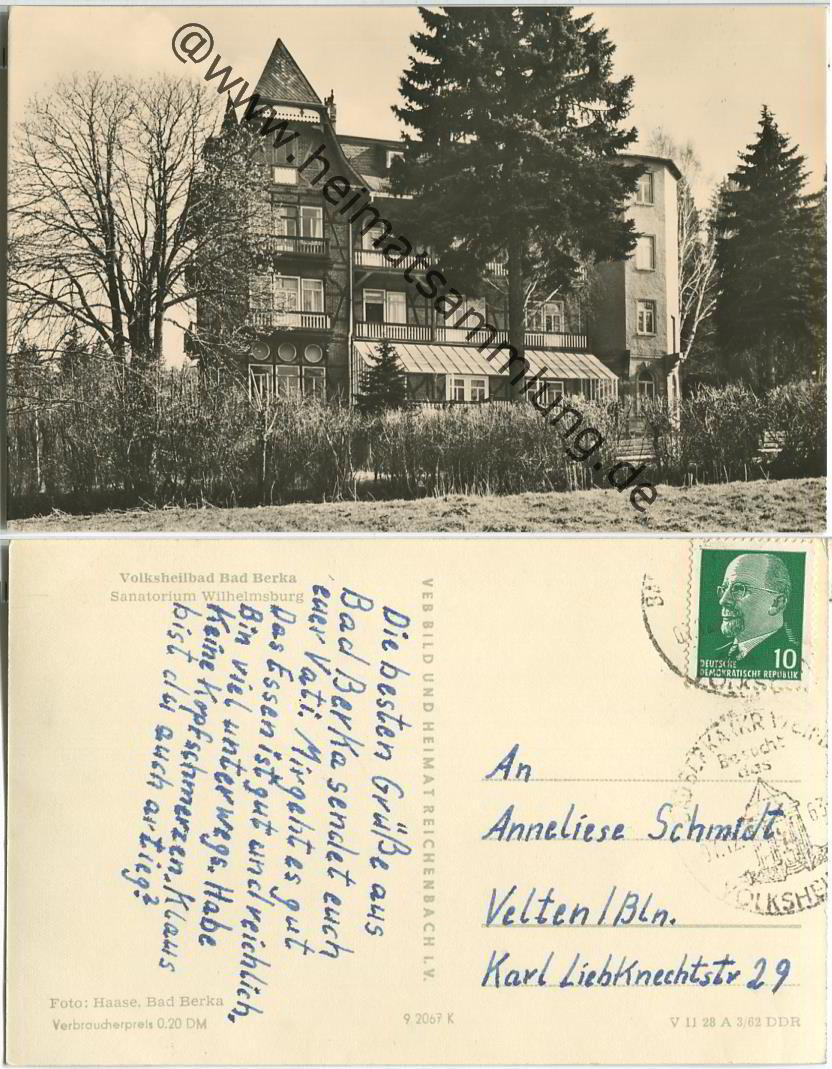 @www.heimatsammlung.de
Volksheilbad Bad Berka
Sanatorium Wilhelmsburg
Die besten Grüße aus
Bad Berka sendet euch
euer Vati. Mir geht es gut
Das Essen ist gut und reichlich.
Bin viel unterwegs. Habe
keine Kopfschmerzen. Klaus
bist du auch artig?
Foto: Haase, Bad Berka
Verbraucherpreis 0.20 DM
VEB BILD UND HEIMAT REICHENBACH I. V.
9 2067 K
10
DEUTSCHE
DEMOKRATISCHE REPUBLIK
Besucht
das
VOLKSHEI
63
An
Anneliese Schmidt
Velten/Bln.
Karl Liebknechtstr 29
V 11 28 A 3/62 DDR